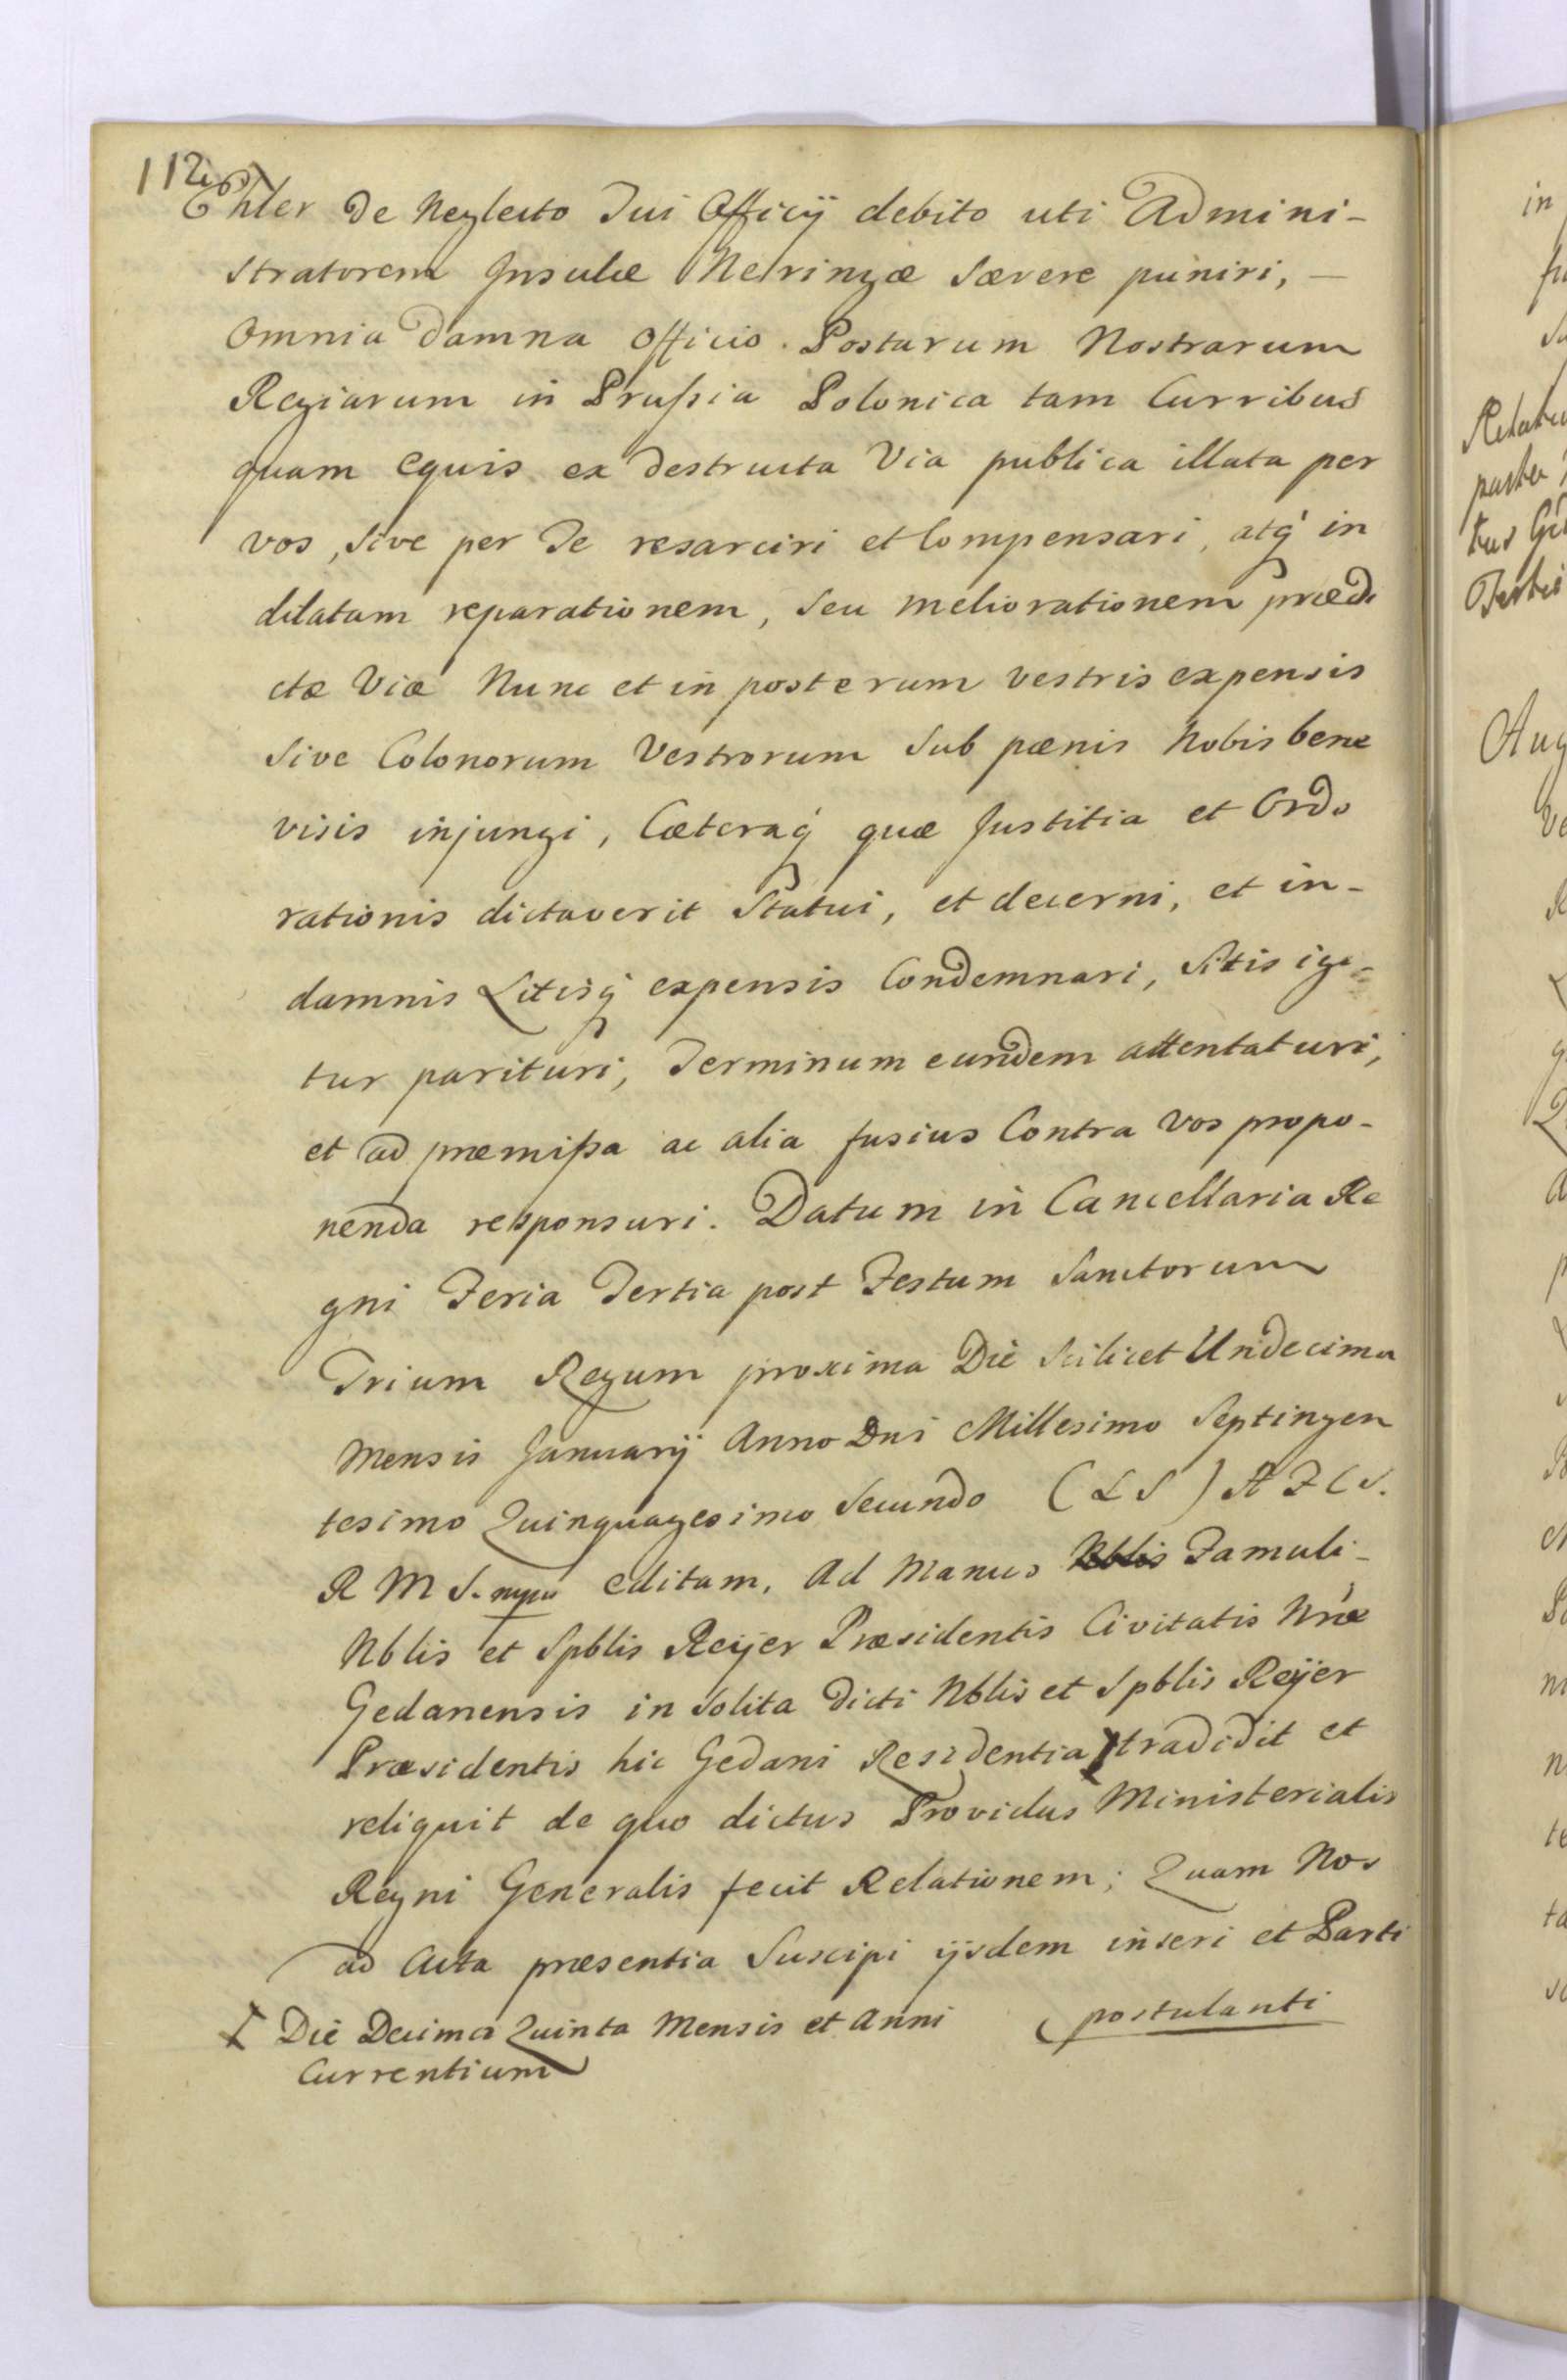 112
Ehler de Neglecto Tui Officij debito uti Admini-
stratorem Insulæ Neringæ sævere puniri, —
Omnia Damna Officio Postarum Nostrarum
Regiarum in Prußia Polonica tam Curribus
quam equis ex destructa Via publica illata per
vos, sive per Te resarciri et Compensari, atq́ in
dilatam reparationem, seu meliorationem prædi
ctæ Viæ Nunc et in posterum vestris expensis
sive Colonorum Vestrorum sub pænis Nobis bene
visis injungi, Cæteraq́ quæ Justitia et Ordo
rationis dictaverit Statui, et decerni, et in-
damnis Litisq́ expensis Condemnari, Sitis igi-
tur parituri, Terminum eundem attentaturi,
et ad præmißa ac alia fusius Contra Vos propo-
nenda responsuri. Datum in Cancellaria Re
gni Feria Tertia post Festum Sanctorum
Trium Regum proxima Die scilicet Undecima
Mensis Januarij Anno Dni Millesimo Septingen
tesimo Quinquagesimo Secundo (L S) A F C S.
R M S. mppa editam, Ad Manus Nblis Famuli
Nblis et Spblis Reÿer Præsidentis Civitatis Nræ
Gedanensis in solita dicti Nblis et Spblis Reÿer
Præsidentis hic Gedani Residentia tradidit et
reliquit de quo dictus Providus Ministerialis
Regni Generalis fecit Relationem; Quam Nos
ad Acta præsentia Suscipi ijsdem inseri et Parti
postulanti
Die Decima Quinta Mensis et Anni
Currentium
in
Testes
Aug